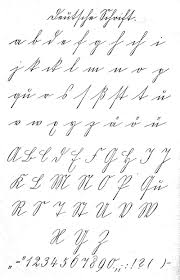 Deutsche Schrift.
a b c d e f g h ch i
j k ck l m n o p
qu r s ſ ß st t u
v w x y z ä ö ü
A B C D E F G H I J
K L M N O P Qu
R S T St U V W
X Y Z
„-“ 1234567890,.;:!?( )-